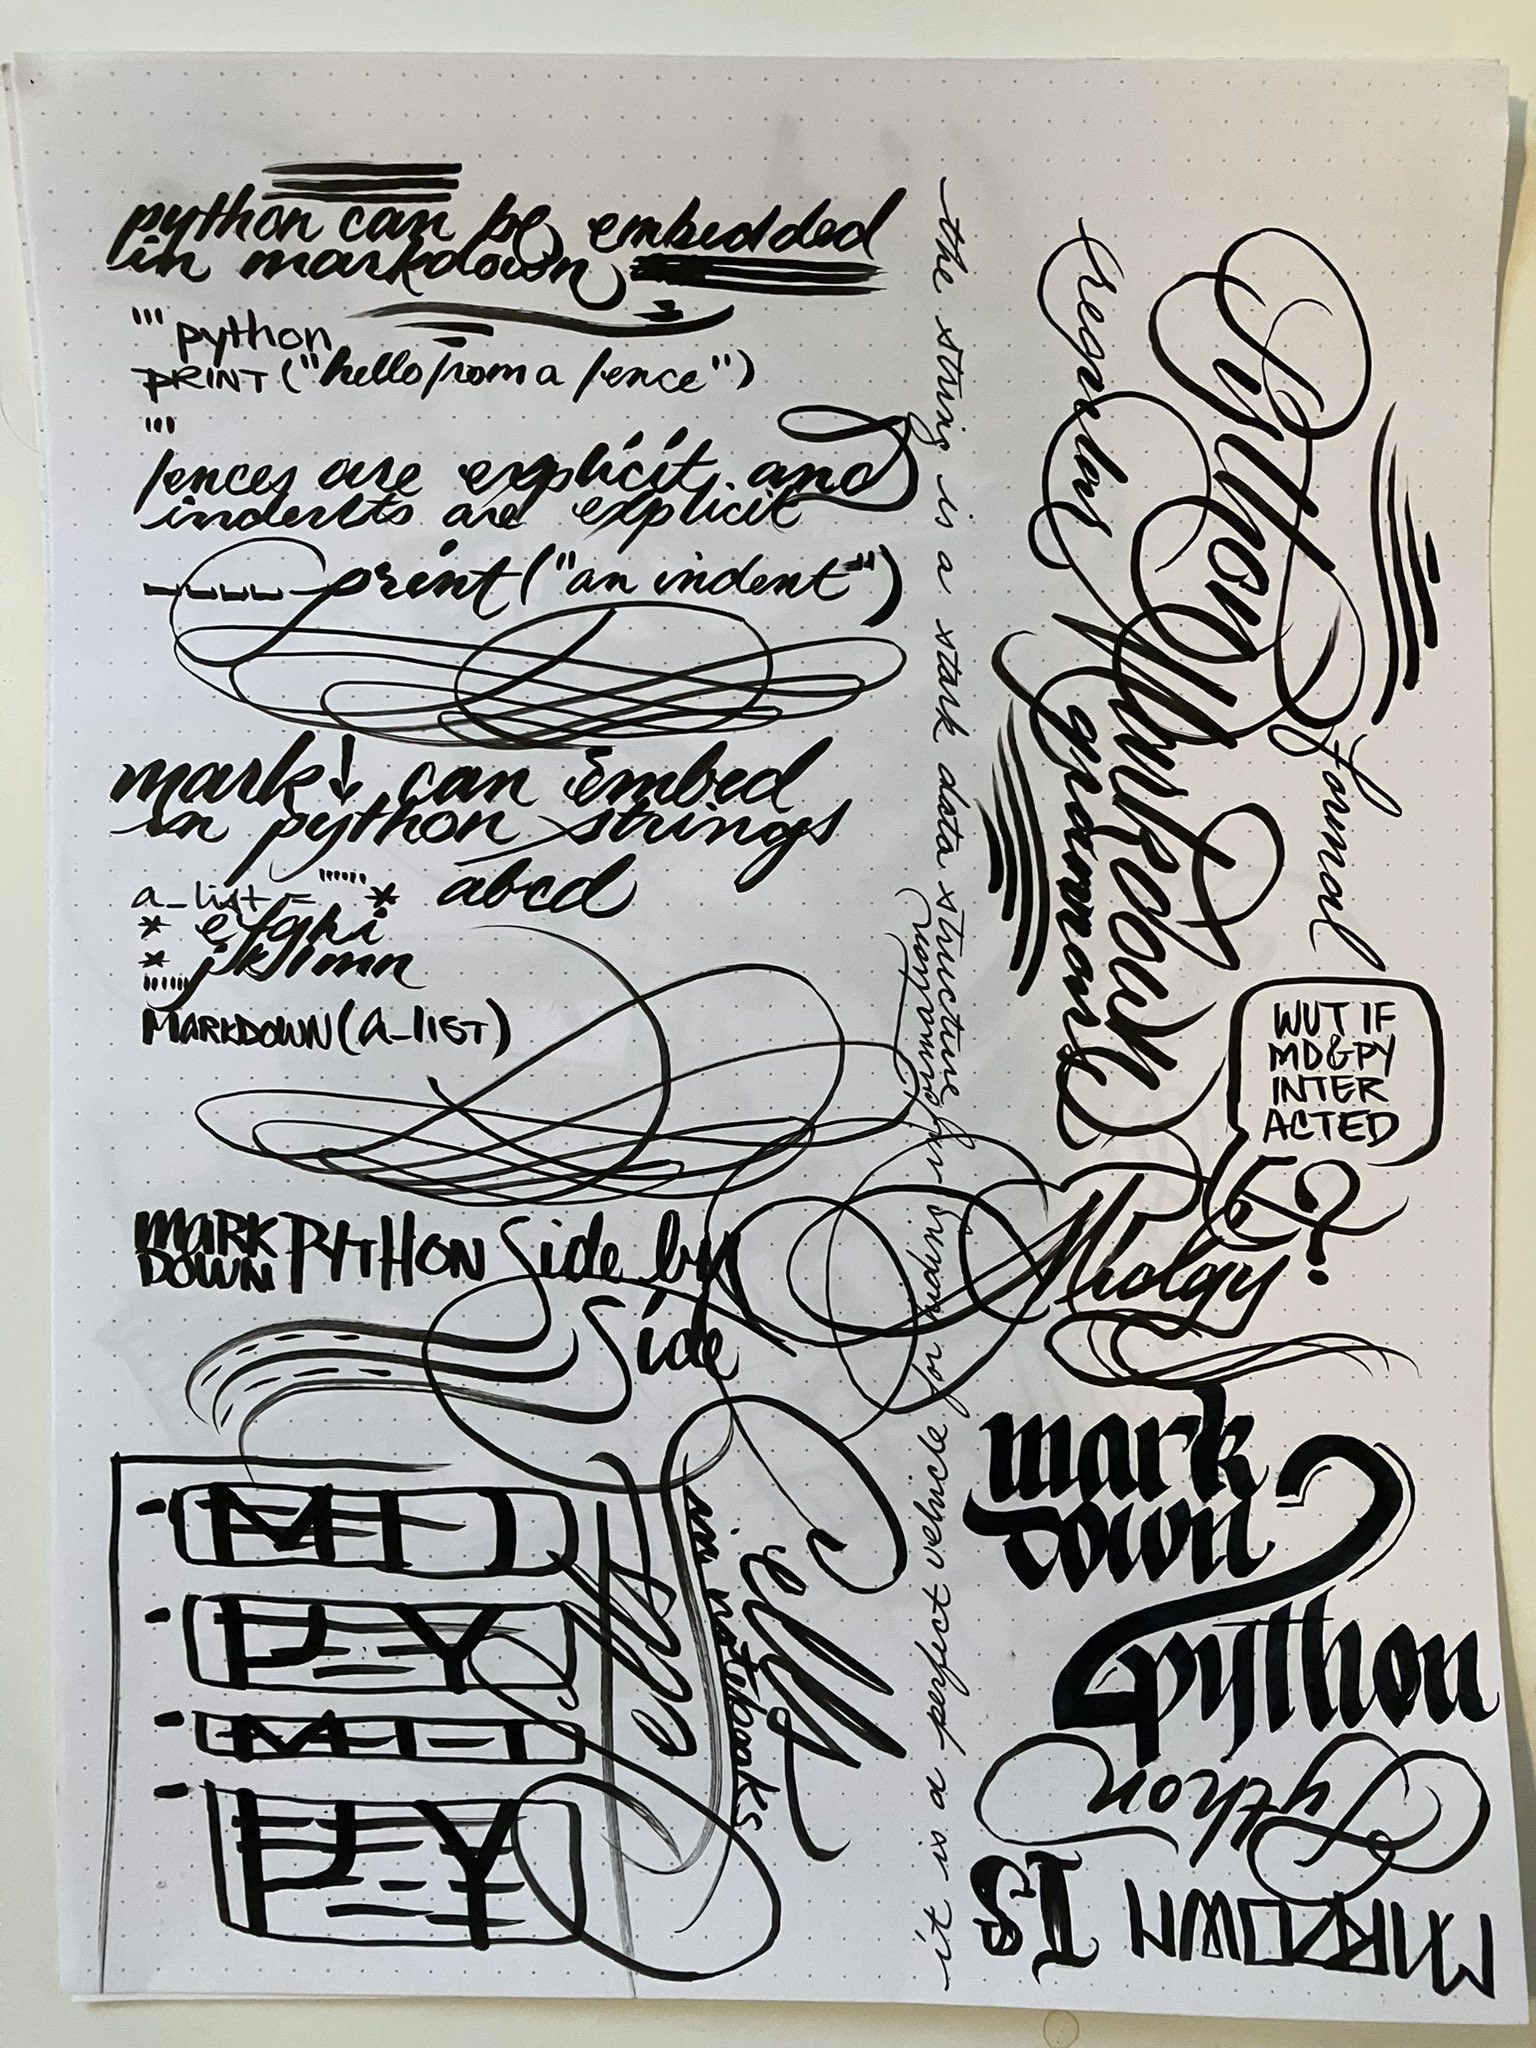 python can be embedded
in markdown
'''python
PRINT("hello from a fence")
'''
fences are explicit and
indents are explicit
print("an indent")
mark↓ can embed
in python strings
a_list = """* abcd
* efghi
* jklmn
"""
MARKDOWN(a_list)
MARK
DOWN PYTHON Side by
Side
MD
PY
MD
PY
Cells
in notebooks
the string is a stark data structure
it is a perfect vehicle for nudging
Python
formal
regular
Markdown
grammars
WUT IF
MD&PY
INTER
ACTED
Pidgy
?
mark
down
2python
MARKDOWN IS
Python